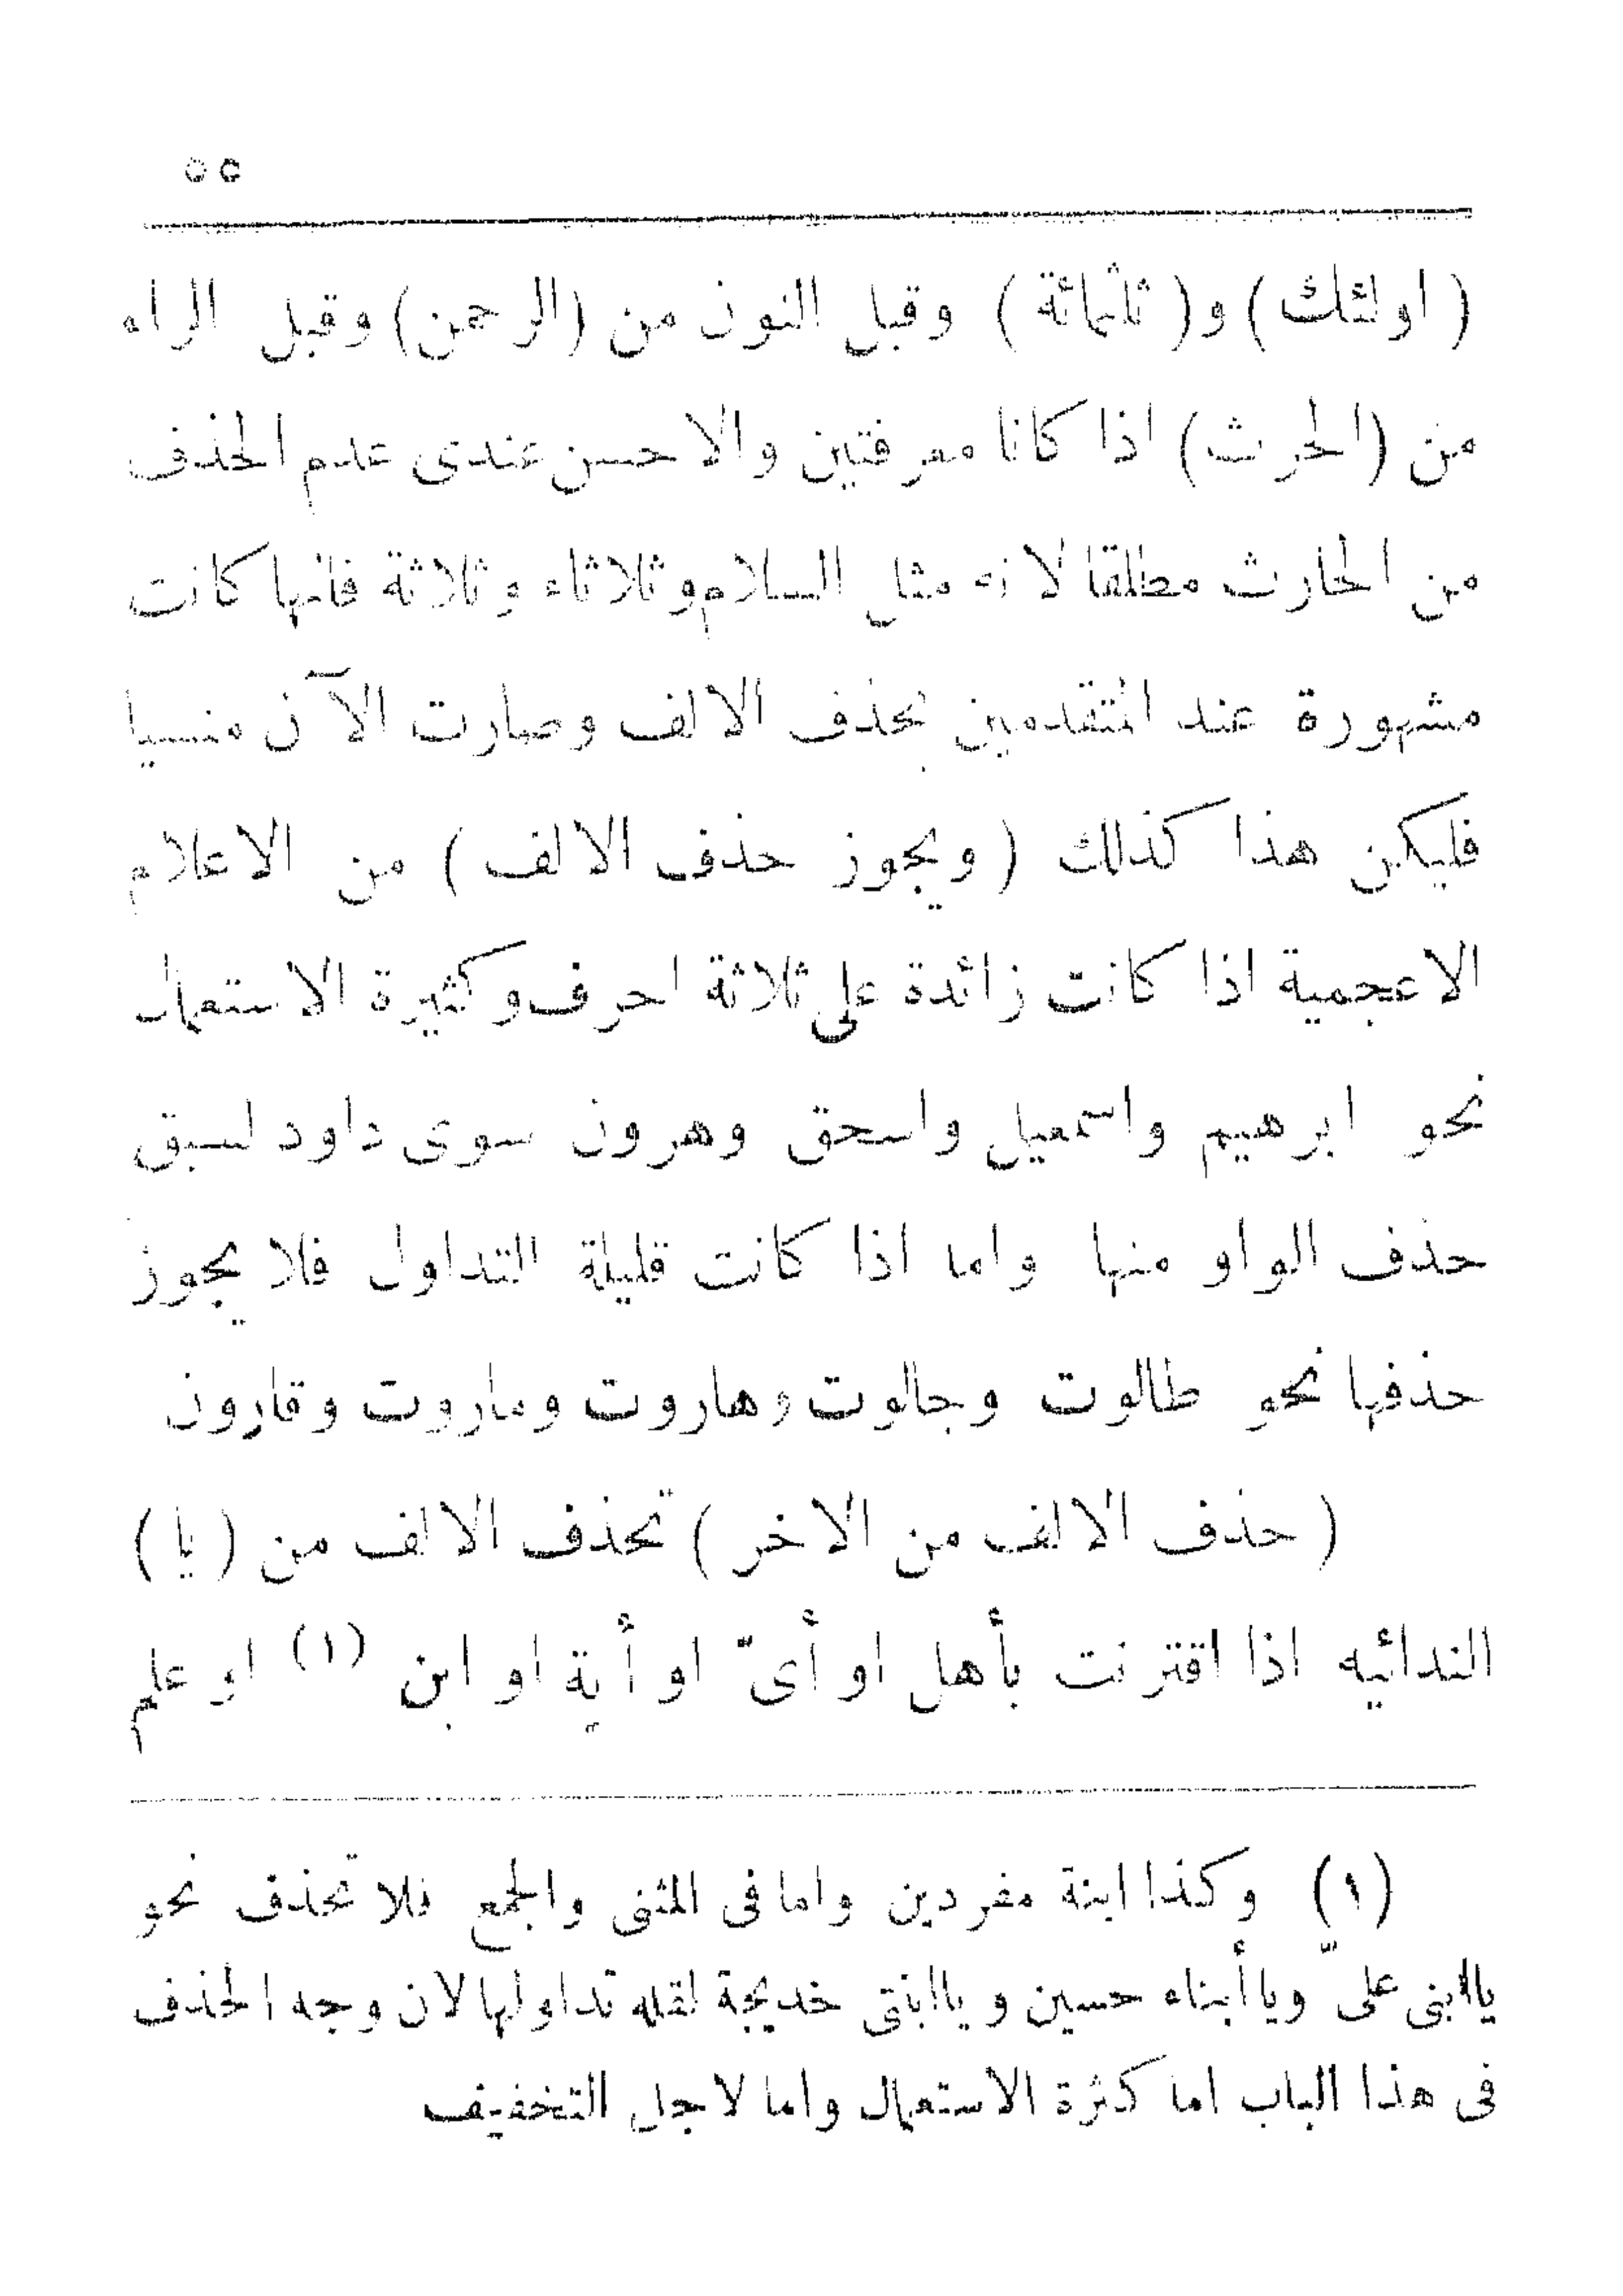 ٥٥
( اولئك ) و ( ثلثمائة ) وقبل النون من (الرحمن) وقبل الراء
من (الحرث) اذا كانا معرفتين والاحسن عندى عدم الحذف
من الحارث مطلقا لانه مثل السلام وثلاثاء وثلاثة فانها كانت
مشهورة عند المتقدمين بحذف الالف وصارت الآن منسيا
فليكن هذا كذلك ( ويجوز حذف الالف ) من الاعلام
الاعجمية اذا كانت زائدة على ثلاثة احرف وكثيرة الاستعمال
نحو ابرهيم واسمعيل واسحق وهرون سوى داود لسبق
حذف الواو منها واما اذا كانت قليلة التداول فلا يجوز
حذفها نحو طالوت وجالوت وهاروت وماروت وقارون
( حذف الالف من الاخر ) تحذف الالف من ( يا )
الندائيه اذا اقترنت بأهل او أىّ او أية او ابن (١) او علم
(١) وكذا ابنة مفردين واما فى المثنى والجمع فلا تحذف نحو
ياابنى علىّ وياأبناء حسين وياابنتى خديجة لقلة تداولها لان وجه الحذف
فى هذا الباب اما كثرة الاستعمال واما لاجل التخفيف